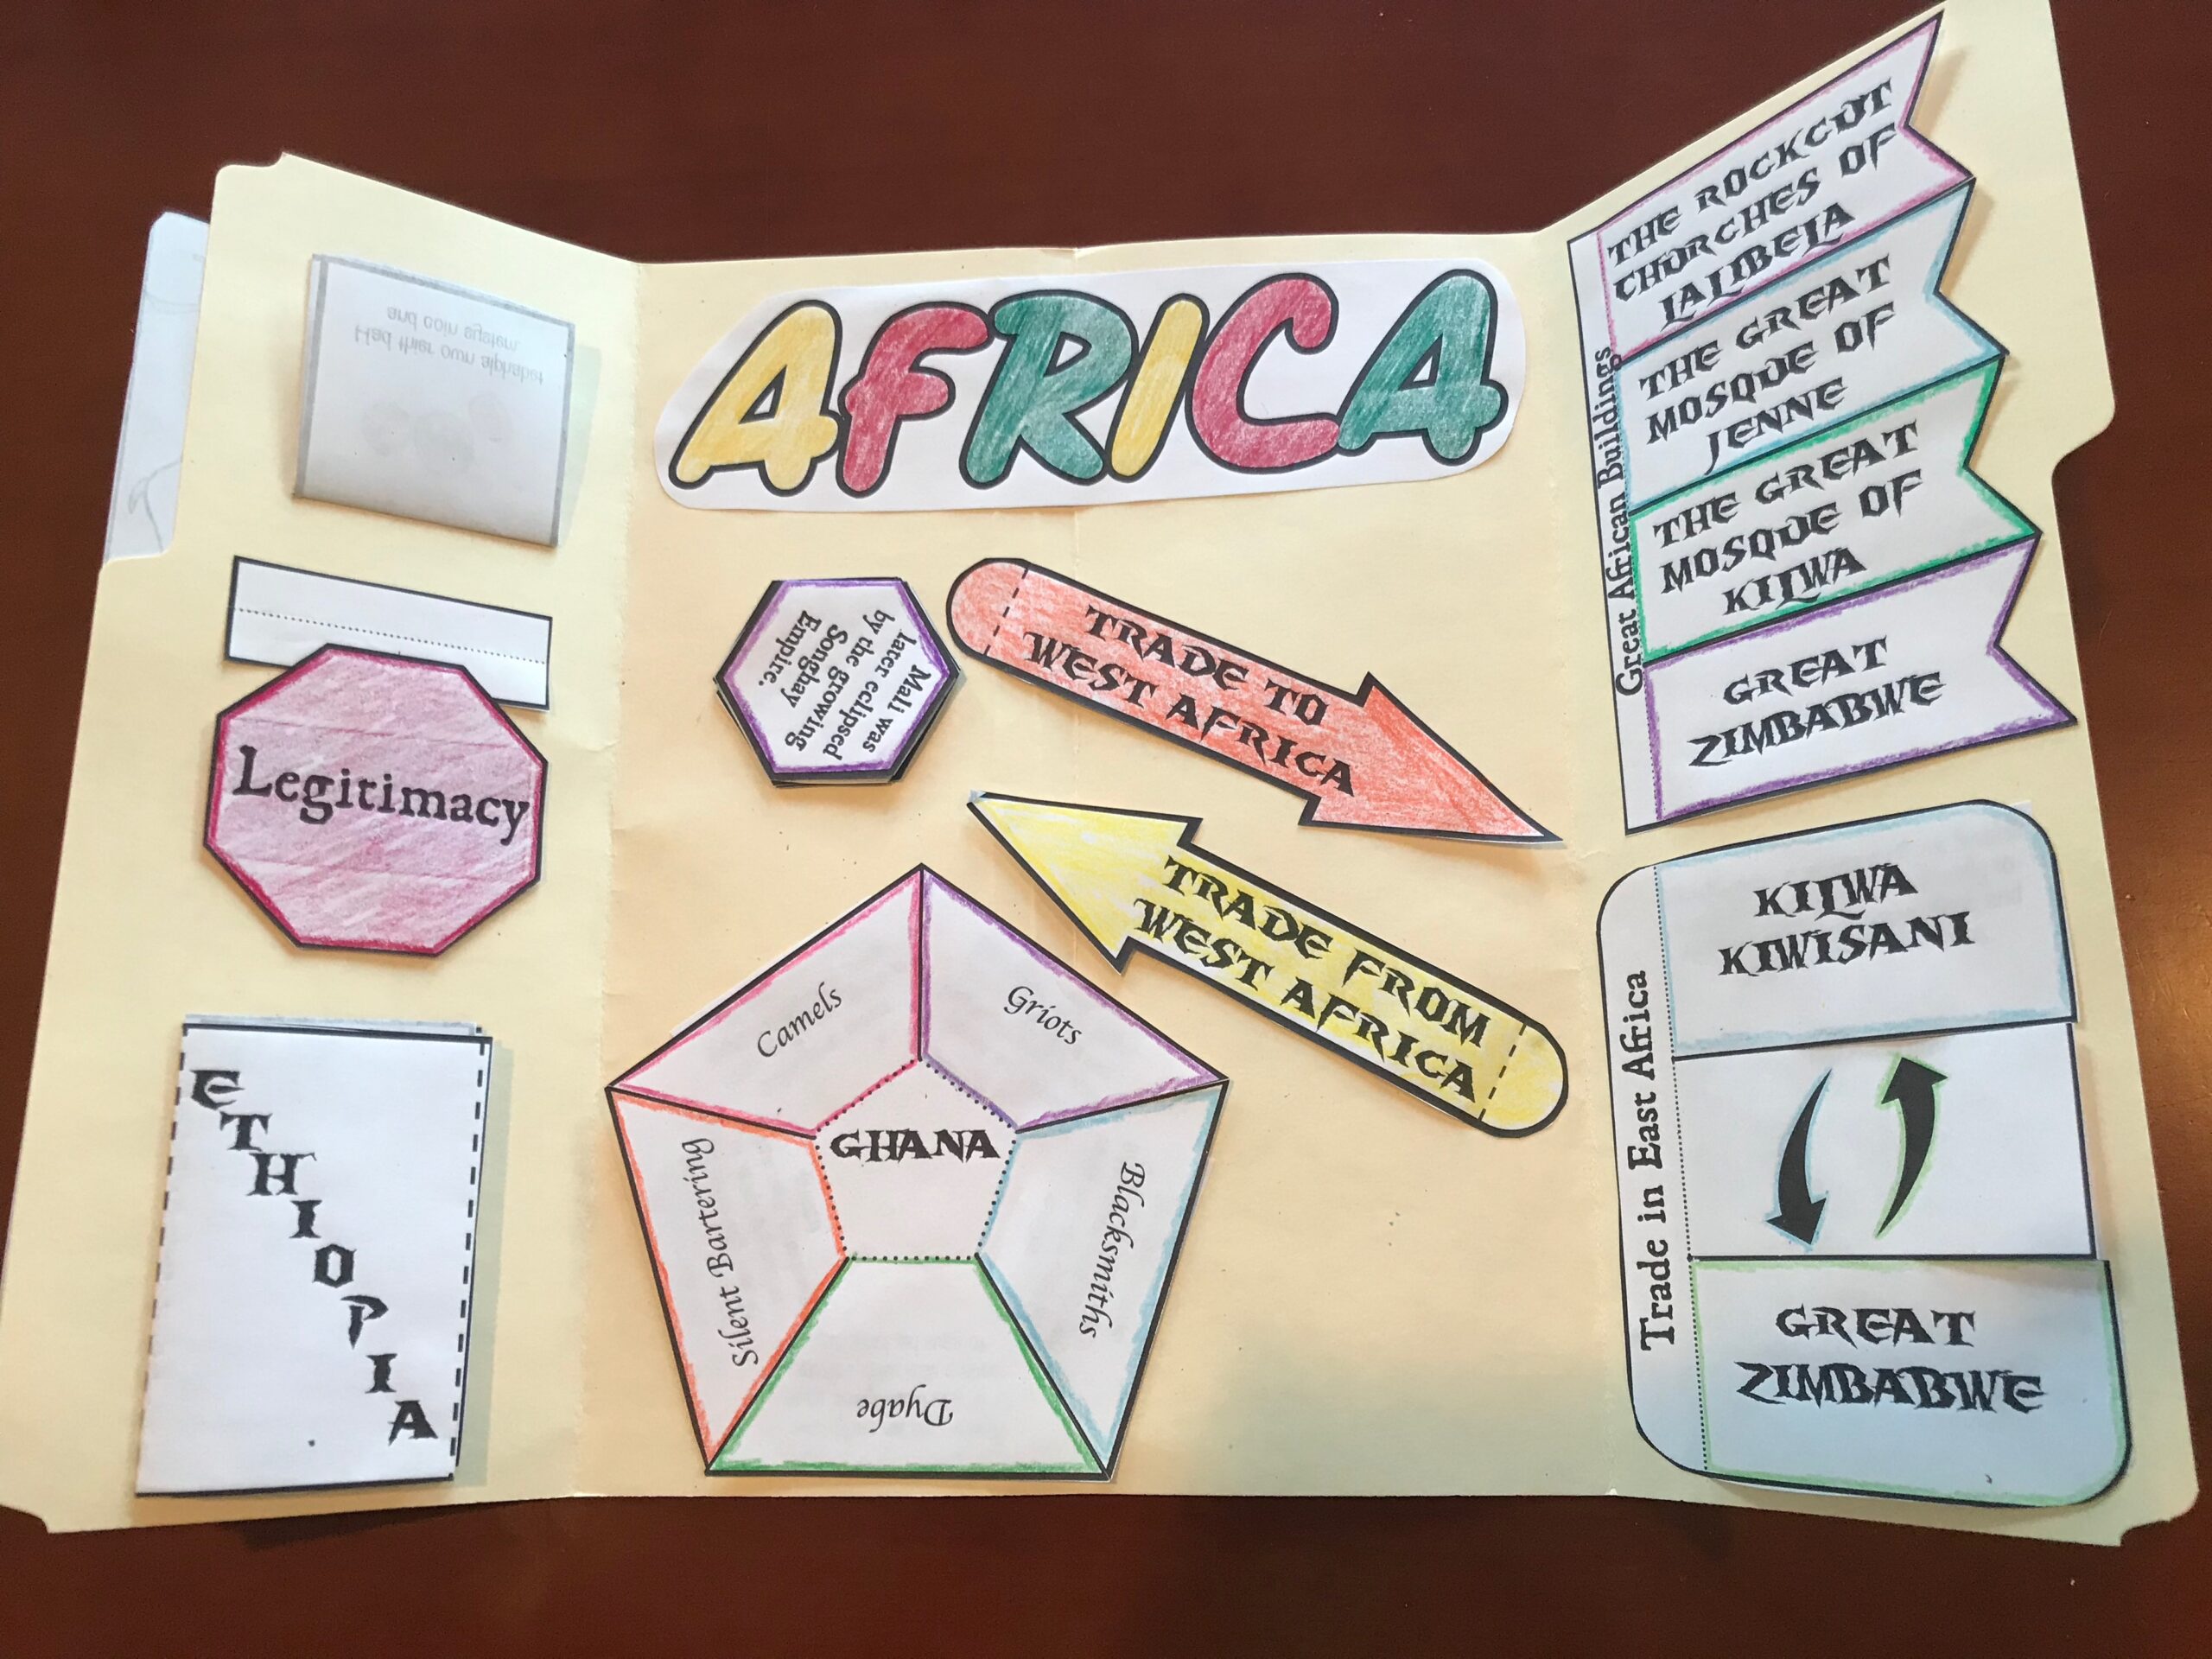 AFRICA
Had thier own alphabet
and coin system.
Legitimacy
ETHIOPIA
Mali was
later eclipsed
by the growing
Songhay
Empire.
TRADE TO
WEST AFRICA
TRADE FROM
WEST AFRICA
Camels
Griots
Silent Bartering
GHANA
Blacksmiths
Dyabe
Great African Buildings
THE ROCKCUT
CHURCHES OF
LALIBELA
THE GREAT
MOSQUE OF
JENNE
THE GREAT
MOSQUE OF
KILWA
GREAT
ZIMBABWE
Trade in East Africa
KILWA
KIWISANI
GREAT
ZIMBABWE